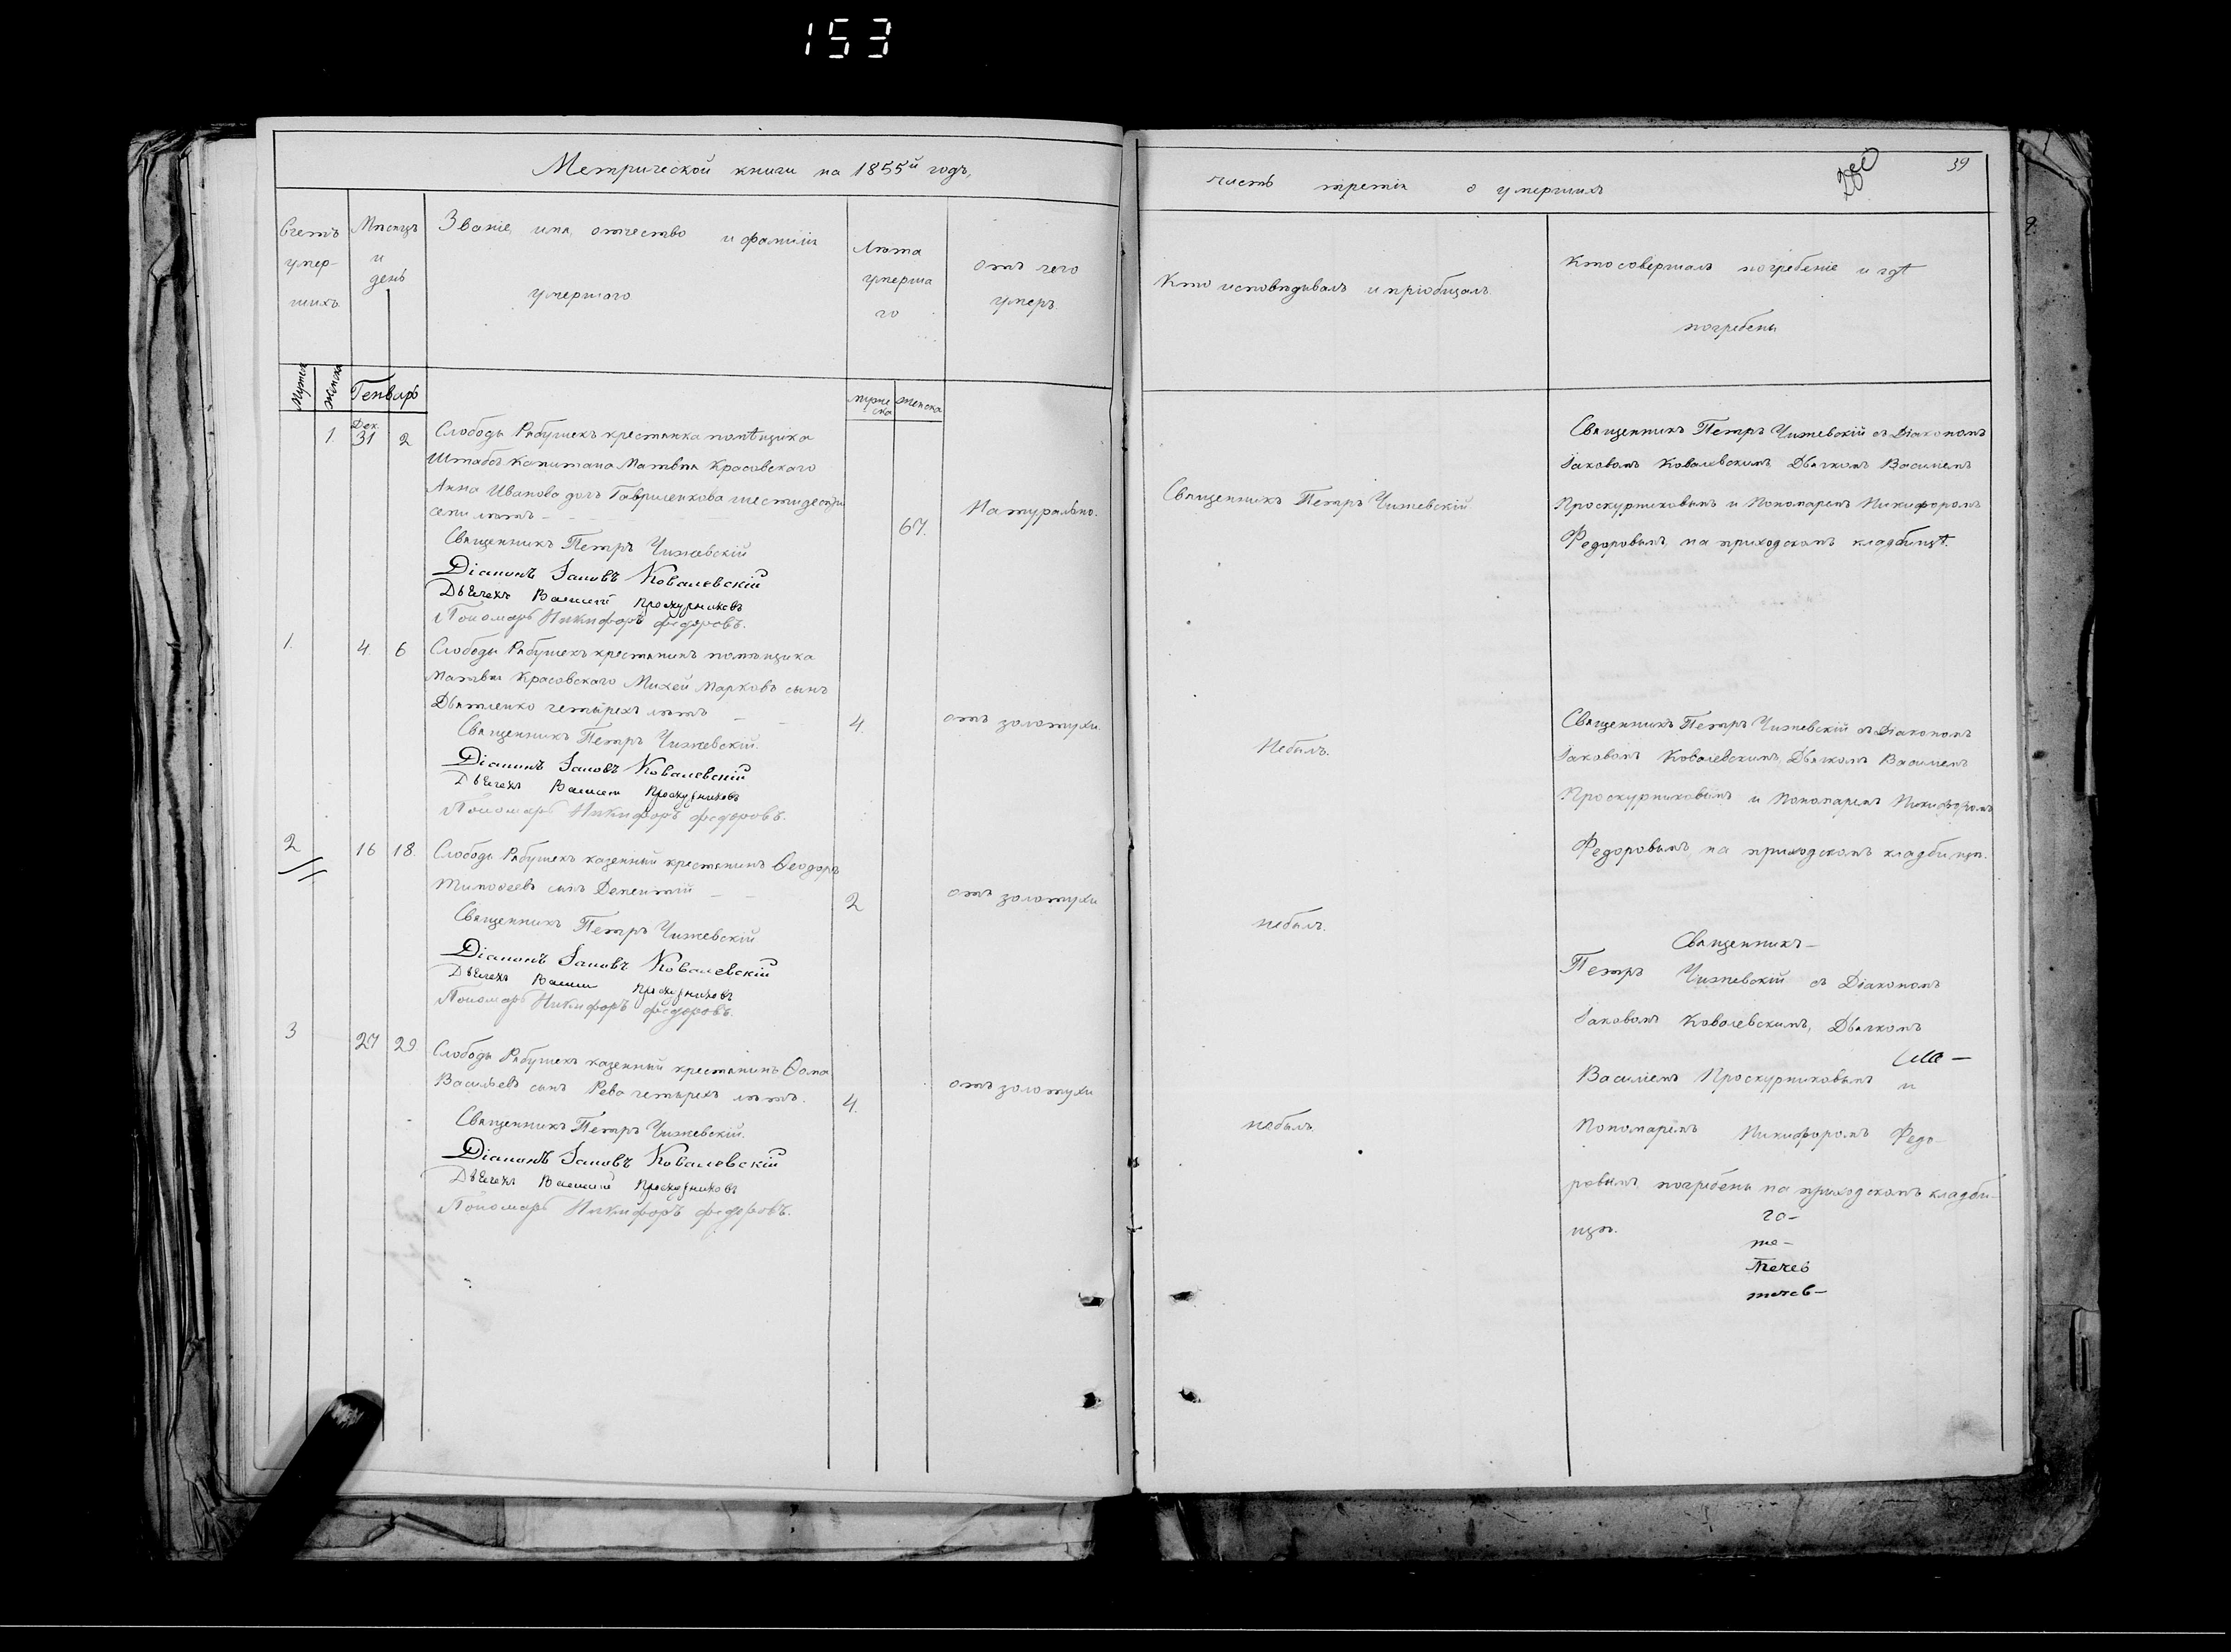 153
Метрической книги на 1855й годъ,
Счетъ умер- шихъ
Мѣсяцъ и день
Званіе, имя, отчество и фамилія
умершаго
Лѣта умерша го
отъ чего умеръ.
Мужск Женска
Генварь
мужеска женска
1. Дек. 31 2 Слободы Рябушекъ крестьянка помѣщика
Штабсъ Капитана Матвѣя Красовскаго
Анна Иванова дочь Гавриленкова шестидесяти
семи лѣтъ - 67. Натурально.
Священникъ Петръ Чижевскій
Діаконъ Іаковъ Ковалевскій
Дьячекъ Василій Проскурниковъ
Пономарь Никифоръ Федоровъ.
1. 4. 6 Слободы Рябушекъ крестьянинъ помѣщика
Матвѣя Красовскаго Михей Марковъ сынъ
Дьятленко четырехъ лѣтъ - - 4. отъ золотухи.
Священникъ Петръ Чижевскій.
Діаконъ Іаковъ Ковалевскій
Дьячекъ Василій Проскурниковъ
Пономарь Никифоръ Федоровъ.
2 16 18. Слободы Рябушекъ казенный крестьянинъ Ѳеодоръ
Тимоѳеевъ сынъ - - 2 отъ золотухи
Священникъ Петръ Чижевскій
Діаконъ Іаковъ Ковалевскій
Дьячекъ Василій Проскурниковъ
Пономарь Никифоръ Федоровъ.
3 27 29 Слободы Рябушекъ казенный крестьянинъ Ѳома
Васильевъ сынъ Рева четырехъ лѣтъ. 4. отъ золотухи
Священникъ Петръ Чижевскій.
Діаконъ Іаковъ Ковалевскій
Дьячекъ Василій Проскурниковъ
Пономарь Никифоръ Федоровъ.
39
часть третія о умершихъ
Кто исповѣдывалъ и пріобщалъ.
Кто совершалъ погребеніе и гдѣ
погребены
Священникъ Петръ Чижевскій
Священникъ Петръ Чижевскій съ Діакономъ
Іаковомъ Ковалевскимъ, Дьячкомъ Василіемъ
Проскурниковымъ и Пономаремъ Никифоромъ
Федоровымъ, на приходскомъ кладбищѣ.
Небылъ.
Священникъ Петръ Чижевскій съ Діакономъ
Іаковомъ Ковалевскимъ, Дьячкомъ Василіемъ
Проскурниковымъ и Пономаремъ Никифоромъ
Федоровымъ на приходскомъ кладбищѣ.
небылъ.
Священникъ -
Петръ Чижевскій съ Діакономъ
Іаковомъ Ковалевскимъ, Дьячкомъ
Василіемъ Проскурниковымъ и
небылъ.
Пономаремъ Никифоромъ Федо-
ровымъ погребены на приходскомъ кладби-
щѣ.
го -